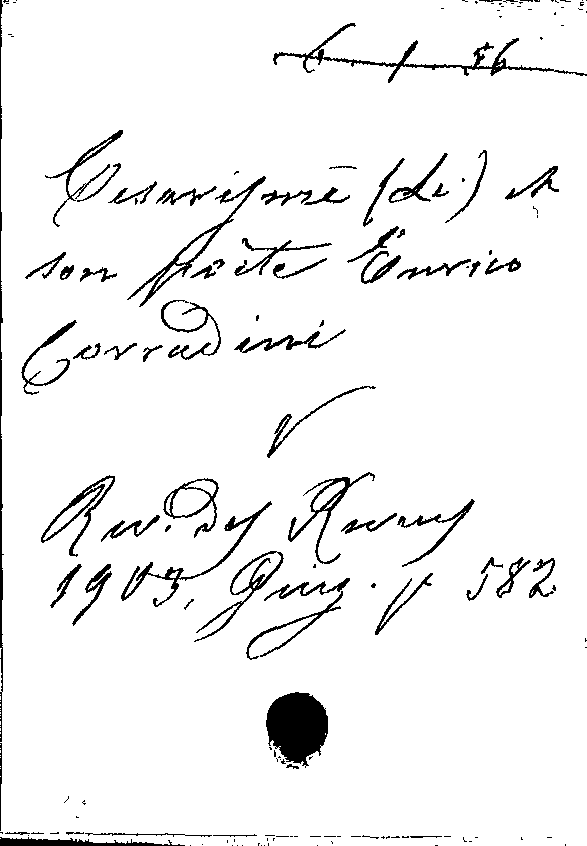 6. 1. 56
Cesarisme (Le) et
son poëte Enrico
Corradini
V
Rev. des Revues
1903, Giug. p 582